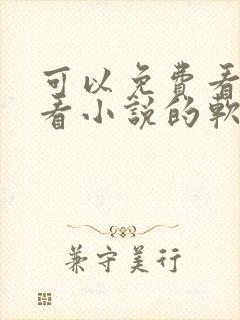 可以免费看
看小説的軟
兼守美行